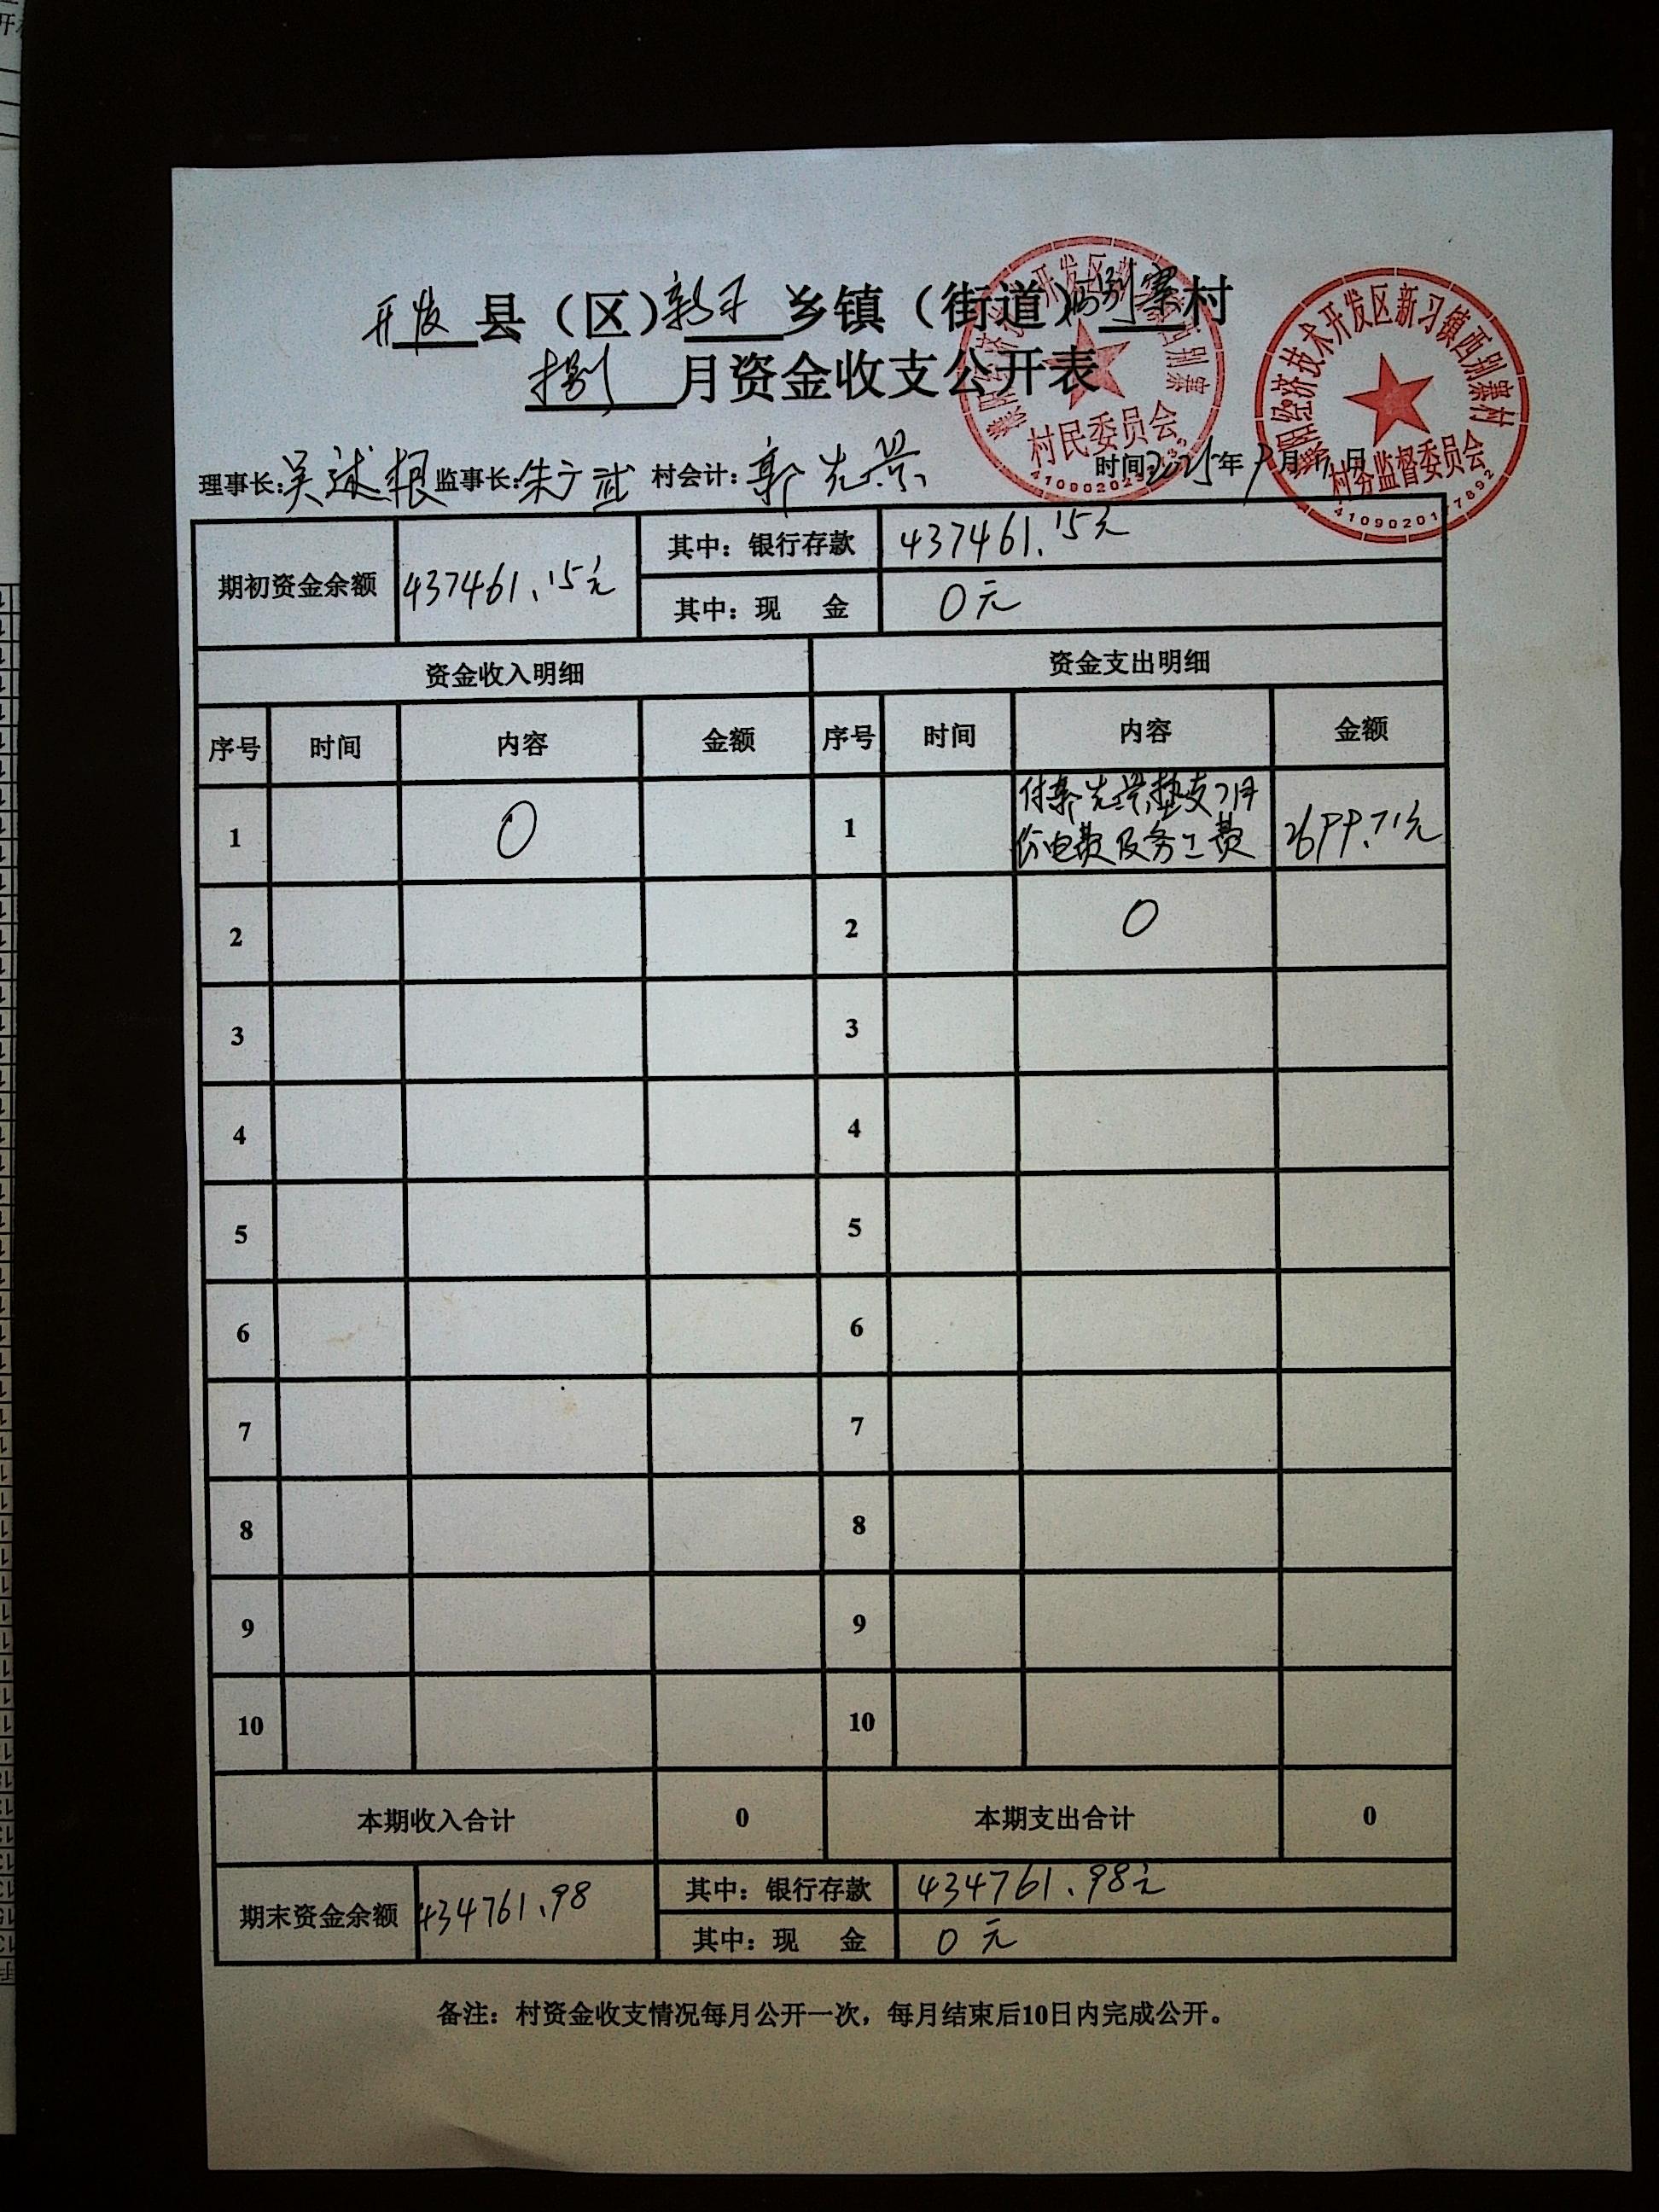 开发县（区）新习乡镇（街道）西别寨村
捌月资金收支公开表
理事长:吴述根 监事长:朱广武 村会计:郭先景 时间2025年9月日
濮阳经济技术开发区新习镇西别寨村
村民委员会
濮阳经济技术开发区新习镇西别寨村
村务监督委员会
期初资金余额 437461.15元 其中：银行存款 437461.15元
其中：现 金 0元
资金收入明细 资金支出明细
序号 时间 内容 金额 序号 时间 内容 金额
1 0 1 付郭先景垫支7月份电费及务工费 2699.71元
2 2 0
3 3
4 4
5 5
6 6
7 7
8 8
9 9
10 10
本期收入合计 0 本期支出合计 0
期末资金余额 434761.98 其中：银行存款 434761.98元
其中：现 金 0元
备注：村资金收支情况每月公开一次，每月结束后10日内完成公开。